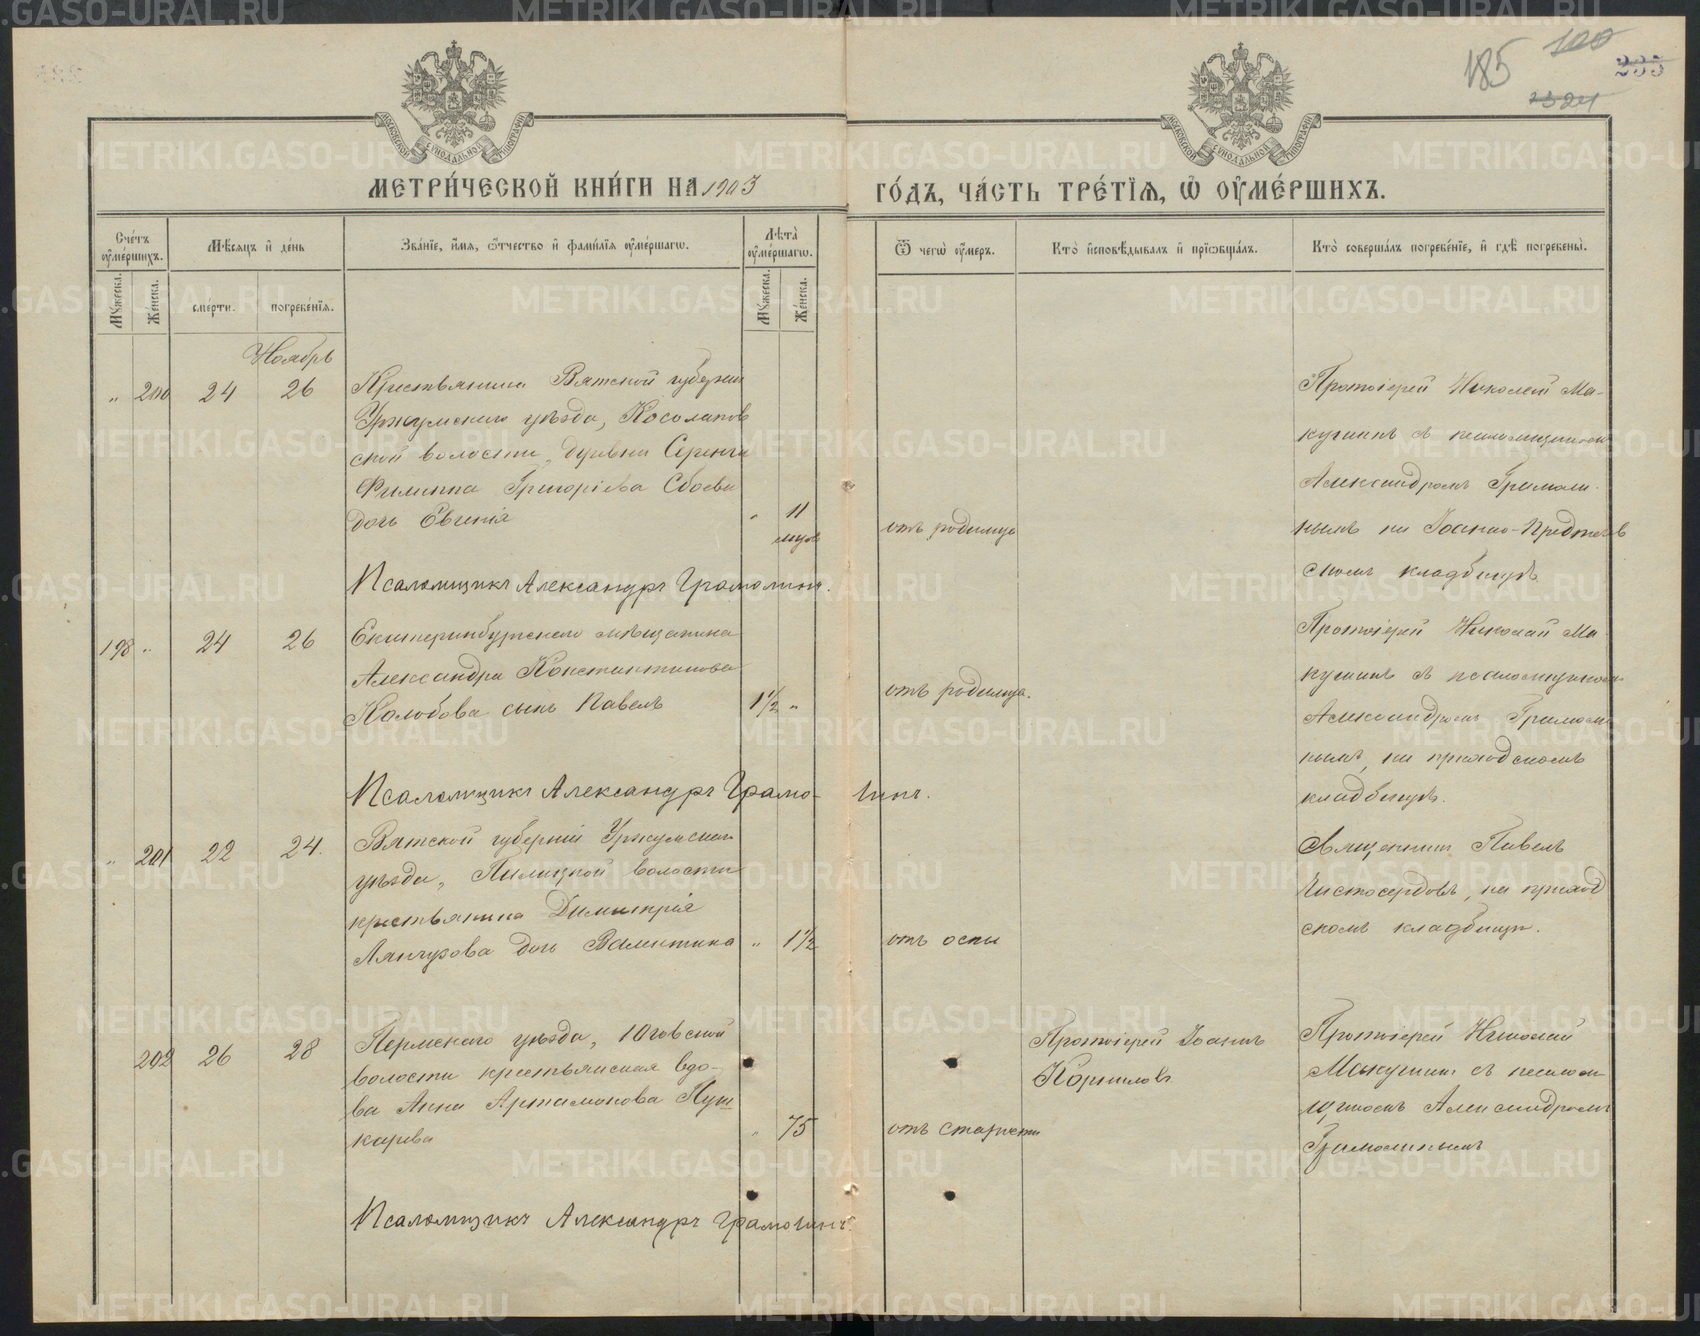 185
100
235
МОСКОВСКОЙ СУНОДАЛЬНОЙ ТИПОГРАФІИ
МОСКОВСКОЙ СУНОДАЛЬНОЙ ТИПОГРАФІИ
МЕТРИ́ЧЕСКОЙ КНИ́ГИ НА 1903 ГО́ДЪ, ЧА́СТЬ ТРЕ́ТЇѦ, Ѽ ОУ҆МЕ́РШИХЪ.
Сче́тъ оу҆ме́ршихъ.
Мѣ́сѧцъ и҆ де́нь
Зва́нїе, и҆́мѧ, ѻ҆́тчество и҆ фами́лїѧ оу҆ме́ршагѡ.
Лѣ́та̀ оу҆ме́ршагѡ.
Ѿ чегѡ̀ оу҆́меръ.
Кто̀ и҆сповѣ́дывалъ и҆ прїѡбща́лъ.
Кто̀ соверша́лъ погребе́нїе, и҆ гдѣ̀ погребены̀.
Му́жеска.
Же́нска.
сме́рти.
погребе́нїѧ.
Му́жеска.
Же́нска.
Ноябрь
" 200 24 26 Крестьянина Вятской губерніи
Уржумскаго уѣзда, Косолапов
ской волости, деревни
Филиппа Григоріева Сбоева
дочь Евгенія " 11
мцев
отъ родимца
Протоіерей Николай Ма-
кушинъ съ псаломщикомъ
Александромъ Грамоли-
нымъ на Іоанно-Предтечев
скомъ кладбищѣ
Псаломщикъ Александръ Грамолинъ.
198 " 24 26 Екатеринбургскаго мѣщанина
Александра Константинова
Колобова сынъ Павелъ 1½ "
отъ родимца.
Протоіерей Николай Ма-
кушинъ съ псаломщикомъ
Александромъ Грамоли
нымъ, на приходскомъ
кладбищѣ.
Псаломщикъ Александръ Грамо- линъ.
" 201 22 24. Вятской губерніи Уржумскаго
уѣзда, волости
крестьянина Димитрія
дочь Валентина " 1½
отъ оспы
Священникъ Павелъ
Чистосердовъ, на приход
скомъ кладбищѣ.
202 26 28 Пермскаго уѣзда, Юговской
волости крестьянская вдо-
ва Анна Артамонова Пуш
карева " 75
отъ старости
Протоіерей Іоаннъ
Корнилов
Протоіерей Николай
Макушинъ съ псалом
щикомъ Александромъ
Грамолинымъ
Псаломщикъ Александръ Грамолинъ.
METRIKI.GASO-URAL.RU